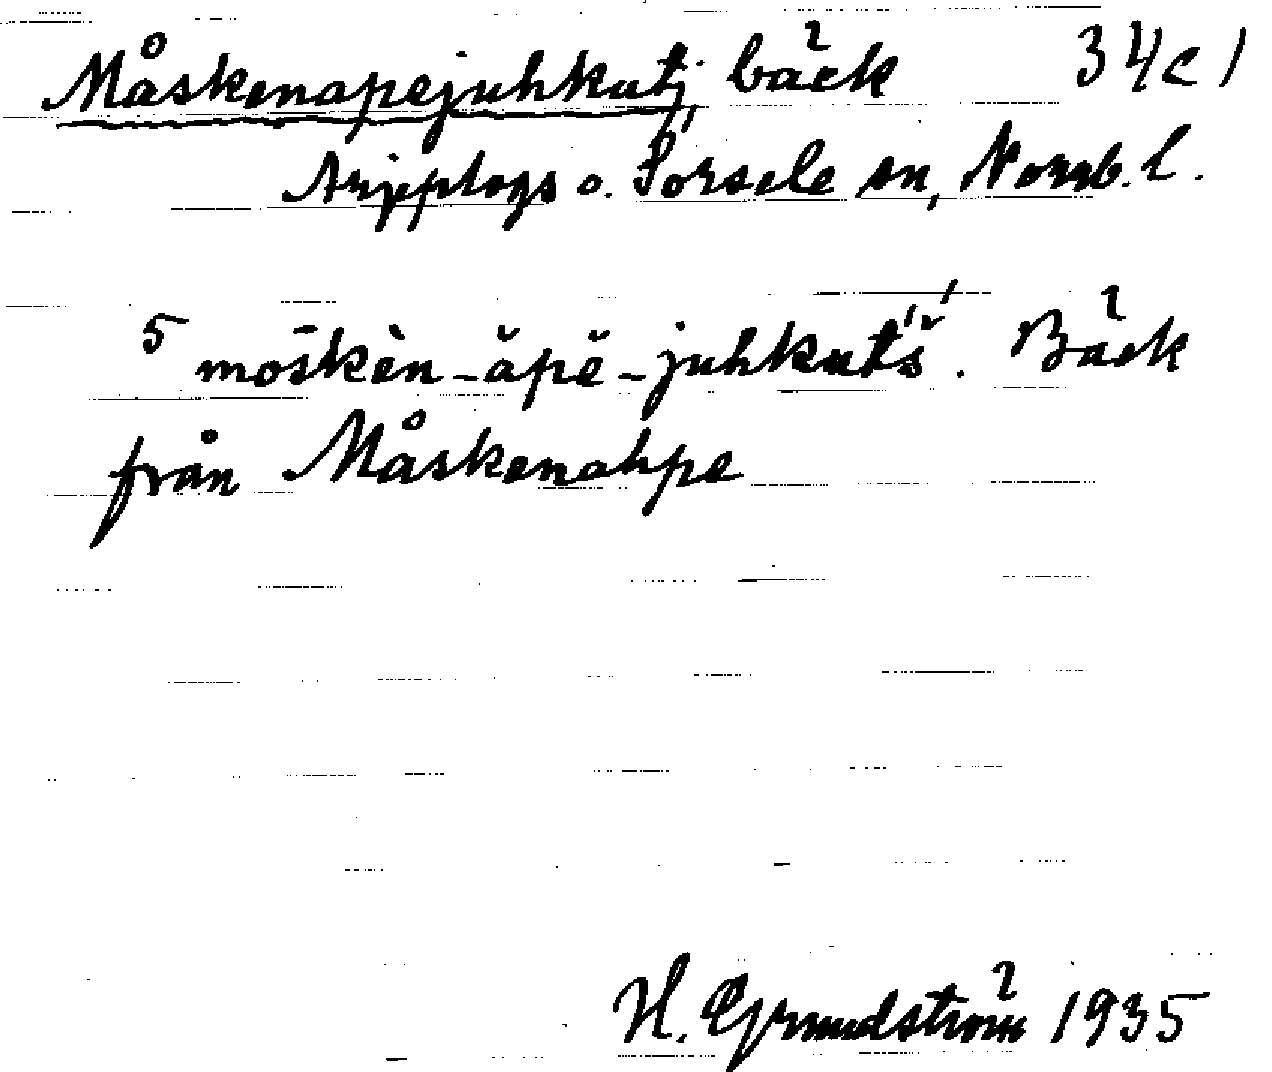 Måskenapejuhkutj, bäck 34c1
Arjeplogs o. Sorsele sn, Norrb. l.
5 mōskèn-ăpĕ-juhkut́š́. Bäck
från Måskenahpe
H. Grundström 1935